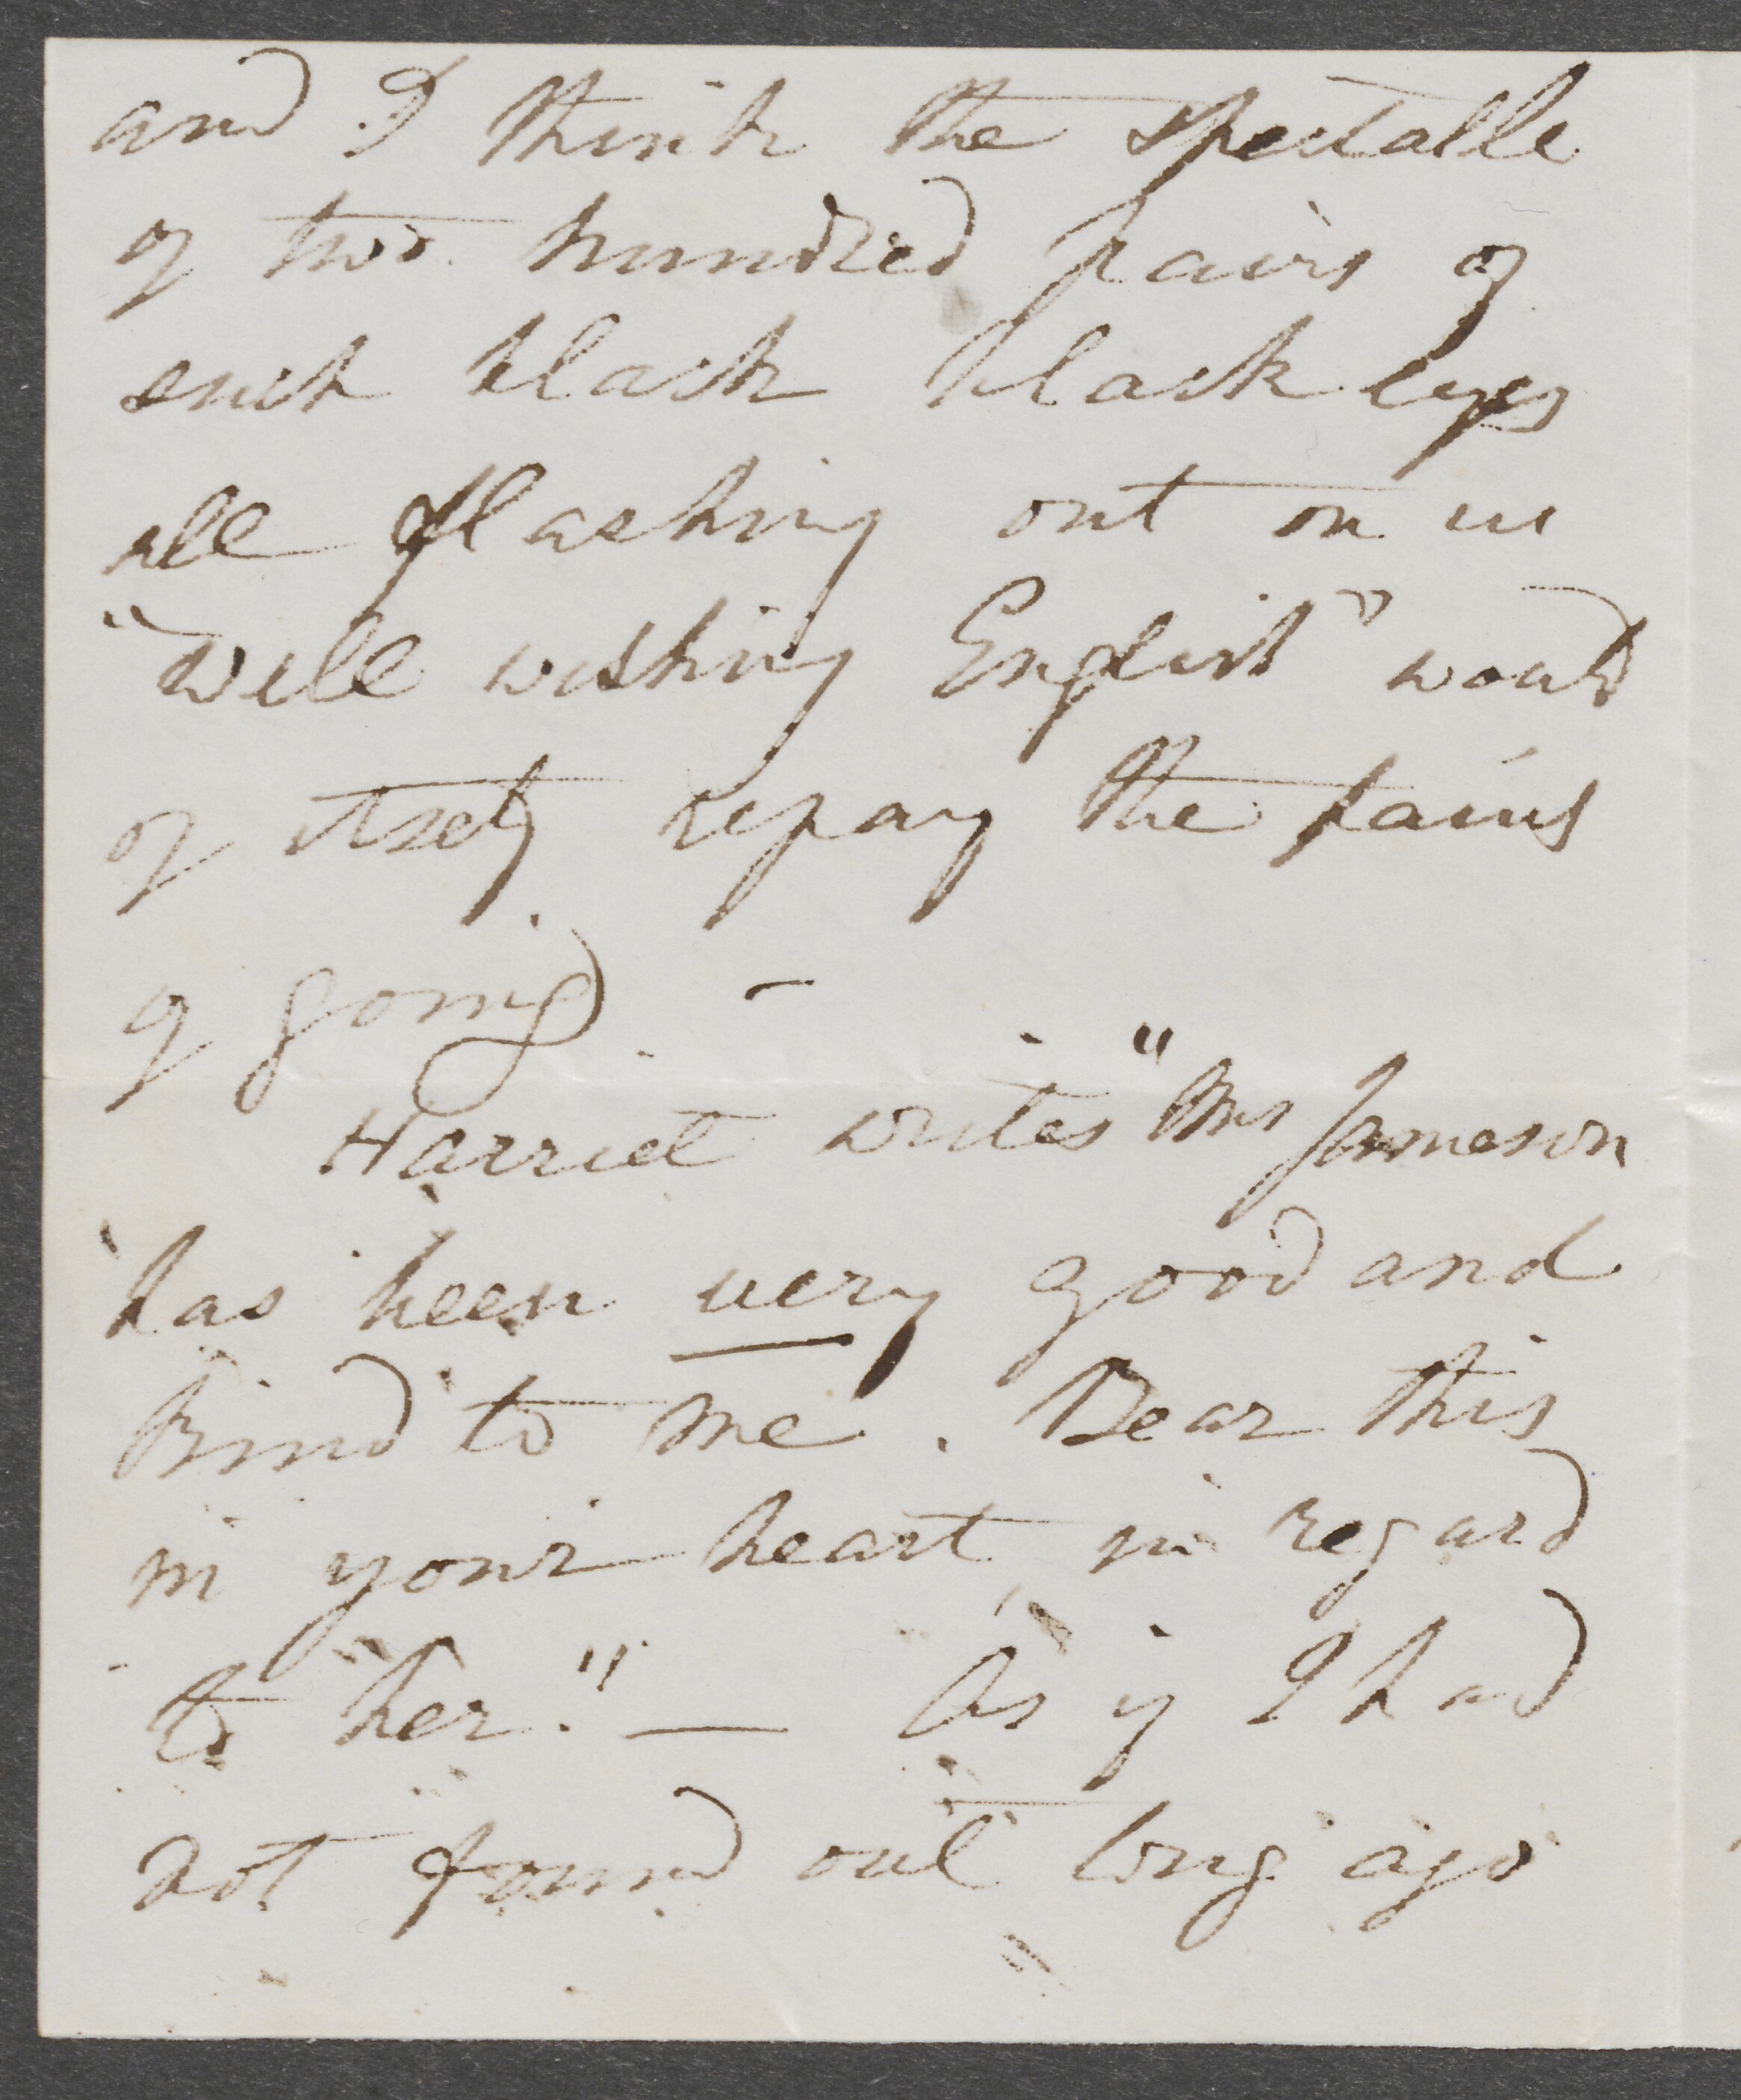 and I think the spectacle
of two hundred pairs of
such black black eyes
all flashing out on us
"well wishing English" would
of itself repay the pains
of going -
Harriet writes "Mrs Jameson
has been very good and
kind to me. Bear this
in your heart in regard
to her." — As if I had
not found out long ago